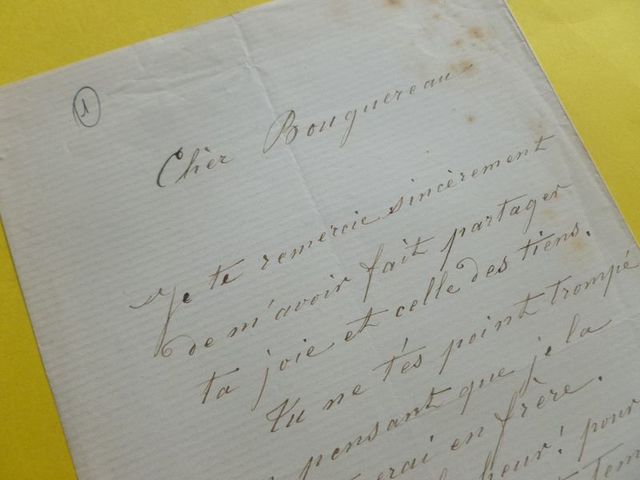 1
Chèr Bouguereau
Je te remercie sincèrement
de m'avoir fait partager
ta joie et celle des tiens.
Tu ne t'és point trompé
pensant que je la
erai en frère.
heur! pour
tem